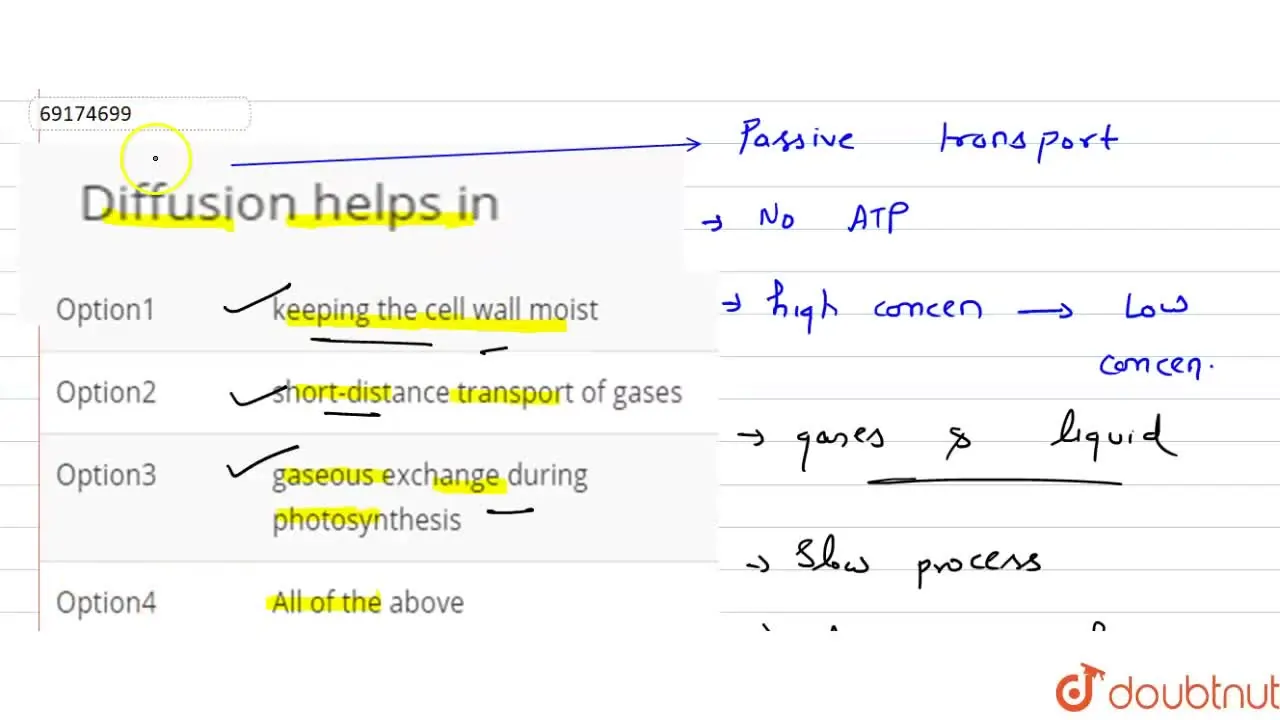 69174699
Diffusion helps in
Option1 keeping the cell wall moist
Option2 short-distance transport of gases
Option3 gaseous exchange during
photosynthesis
Option4 All of the above
Passive transport
→ No ATP
→ high concen → Low
concen.
→ gases & liquid
→ Slow process
doubtnut